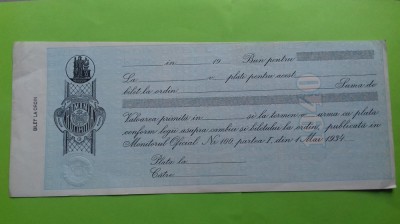 in 19 Bun pentru
La plati pentru acest
bilet la ordin Suma de
Valoarea primită în și la termen urma cu plata
conform legii asupra cambiei și biletului la ordin, publicată în
Monitorul Oficial No 100, partea I, din 1 Mai 1934.
Platit la
Către
BILET LA ORDIN